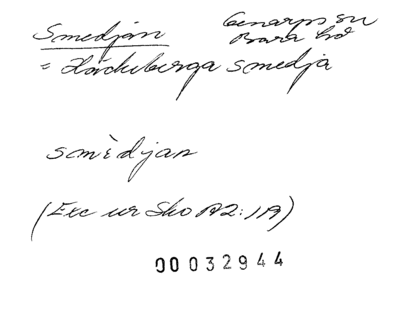 Smedjan Genarps sn
Bara hd
= Häckeberga smedja
smèdjan
(Exc ur Sko A2:1A)
00032944